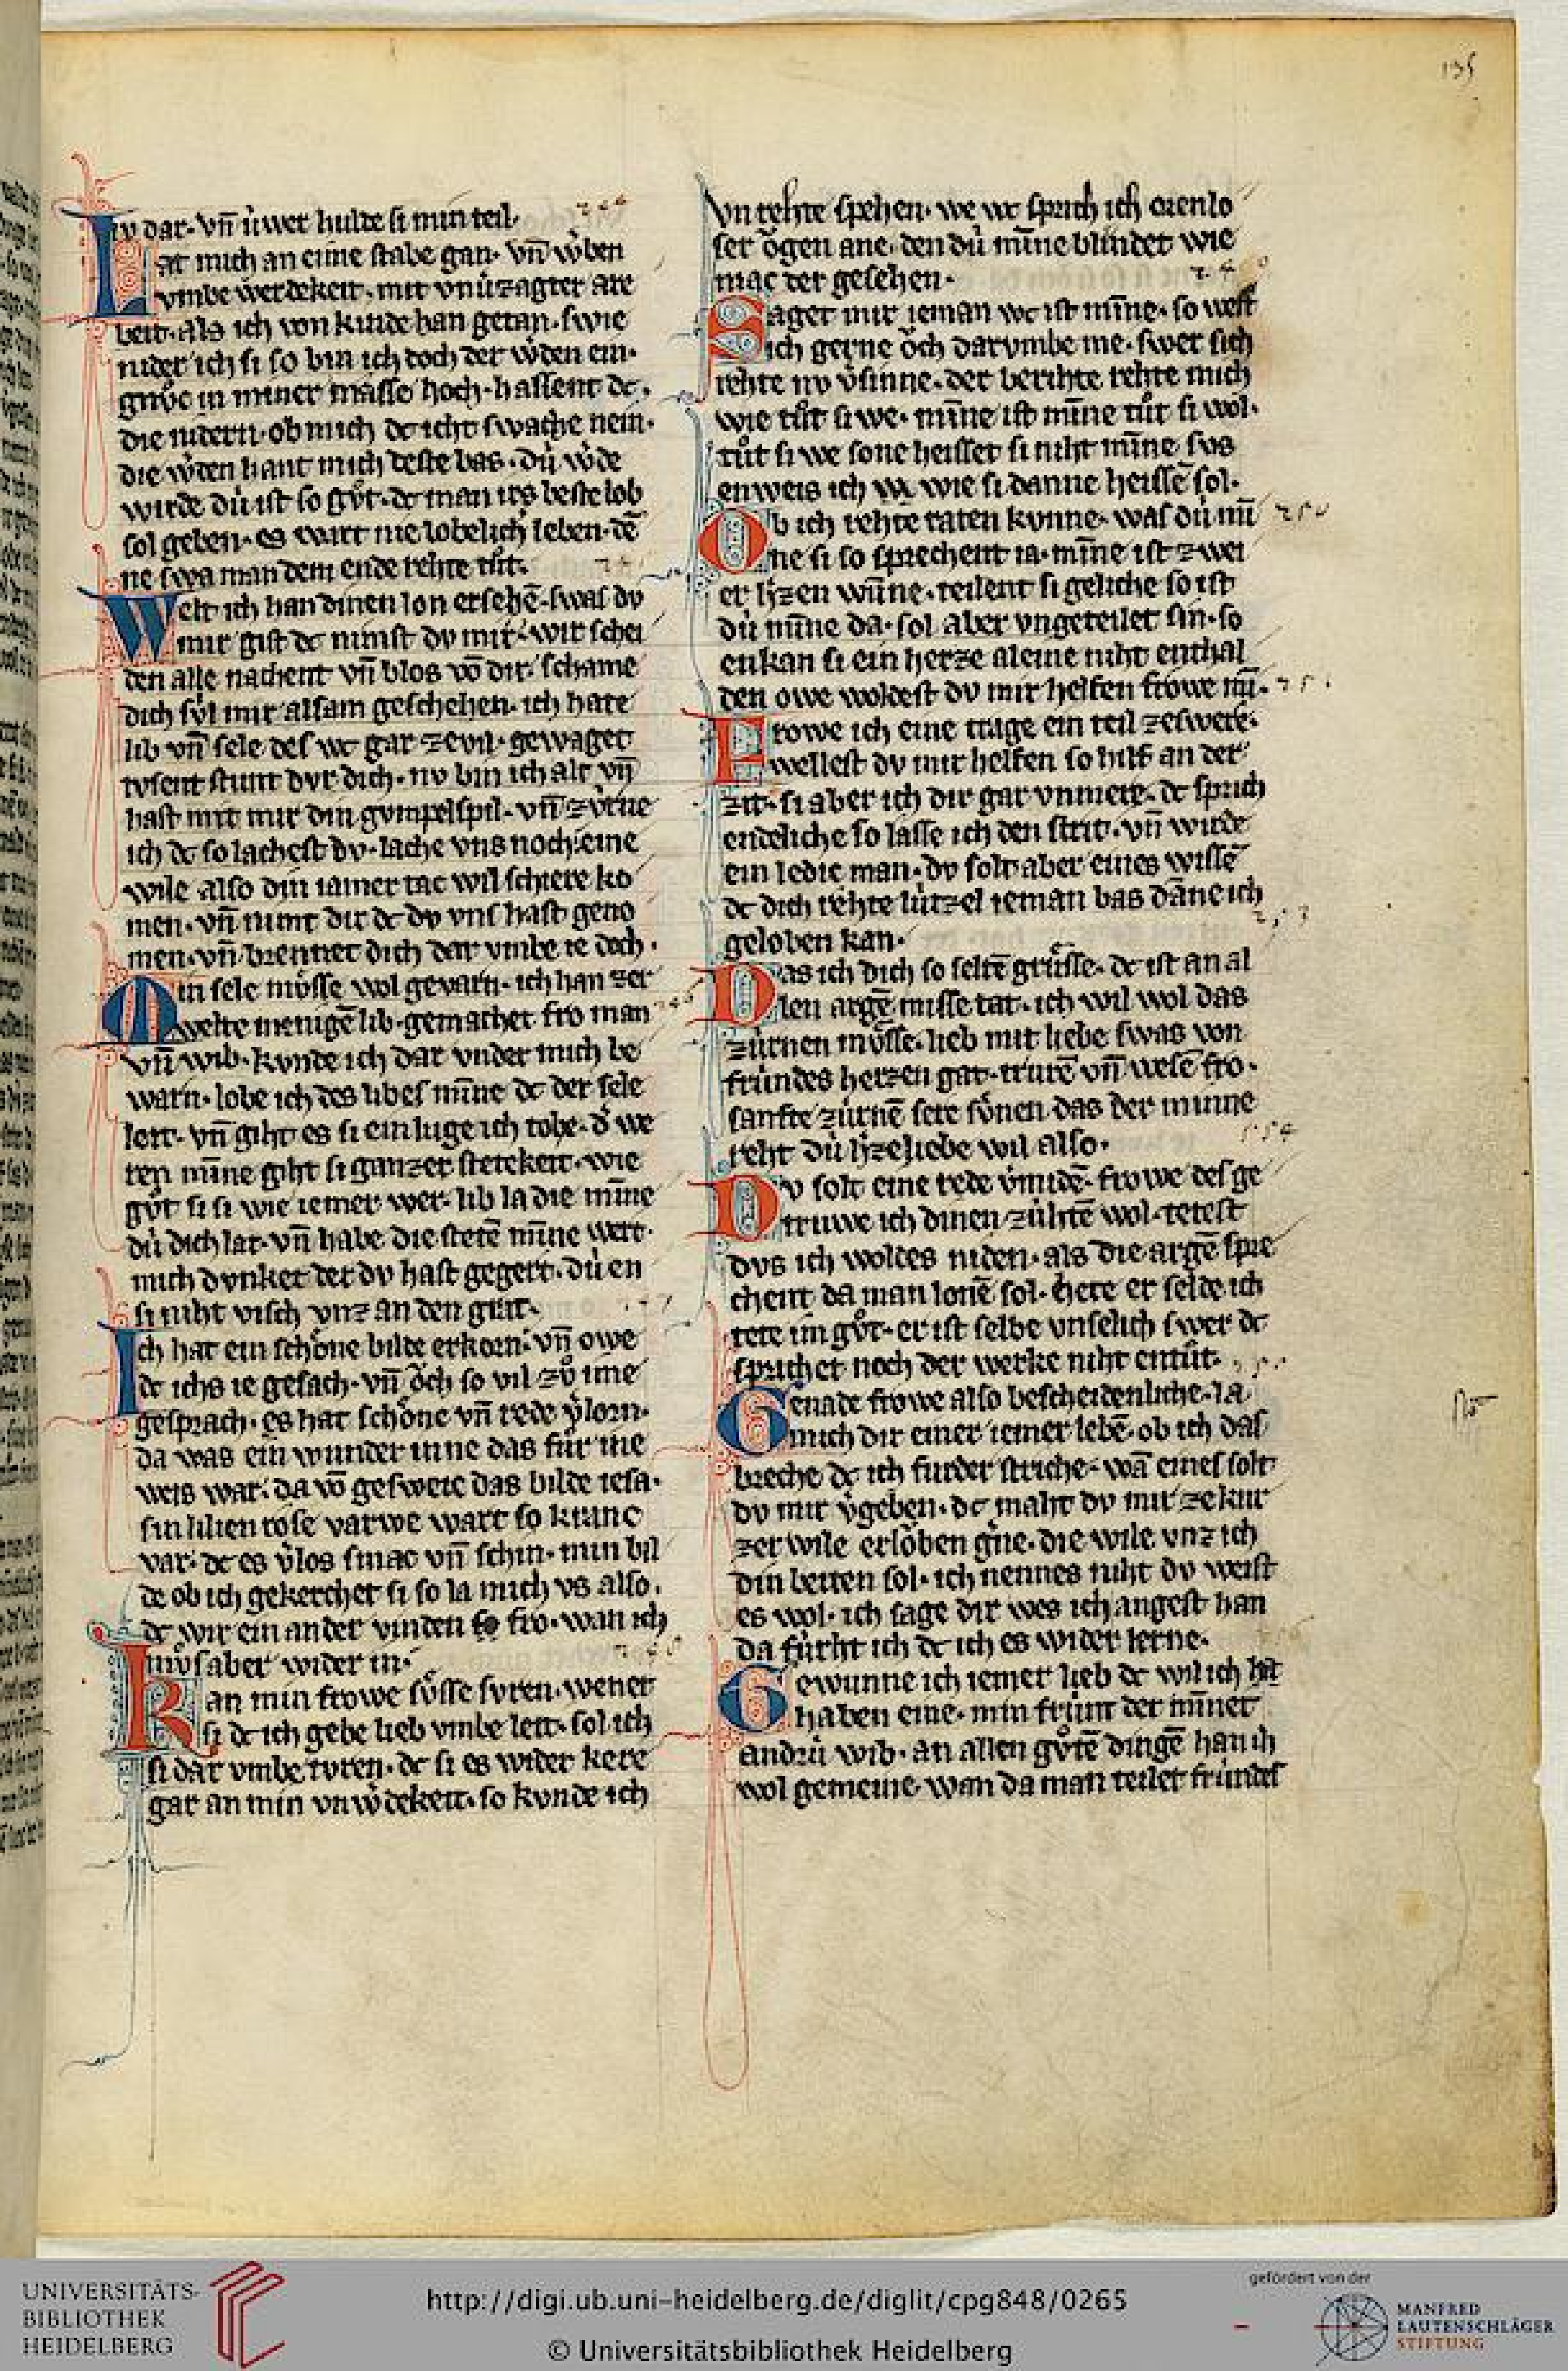 135
lv dar· vn̄ úwer hulde si min teil·
Lat mich an eime stabe gan· vn̄ w̓ben
vmbe werdekeit· mit vnúzagter are
beit· als ich von kinde han getan· swie
nider ich si so bin ich doch der w̓den ein·
gnv̊c in miner masse hoch· hassent dc·
die nidern· ob mich dc icht swache nein·
die w̓den hant mich deste bas· dú w̓de
wirde dú ist so gv̊t· dc man irs beste lob
sol geben· es wart nie lobelich leben· dē
ne swa man dem ende rehte tv̊t·
Welt ich han dinen lon ersehē· swas dv
mir gist dc nimst dv mir· wir schei
den alle nachent vn̄ blos vō dir· schame
dich svl mir alsam geschehen· ich hate
lib vn̄ sele des wc gar zevil· gewaget
tvsent stunt dvr dich· nv bin ich alt vn̄
hast mit mir din gvmpelspil· vn̄ zv́rne
ich dc so lachest dv· lache vns noch eine
wile also din iamer tac wil schiere ko
men· vn̄ nimt dir dc dv vns hast geno
men· vn̄ brennet dich dar vmbe ie doch·
Min sele mv̊sse wol gevarn· ich han zer
welte menigē lib· gemachet fro man
vn̄ wib· kvnde ich dar vnder mich be
warn· lobe ich des libes mīne dc der sele
leit· vn̄ giht es si ein luge ich tobe· d̓ we
ren mīne giht si ganzer stetekeit· wie
gv̊t si si wie iemer wer· lib la die mīne
dú dich lat· vn̄ habe die stetē mīne wert·
mich dvnket der dv hast gegert· dú en
si niht visch vnz an den grat·
Ich hat ein schöne bilde erkorn· vn̄ owe
dc ichs ie gesach· vn̄ och so vil zv̊ ime
gesprach· es hat schöne vn̄ rede v̓lorn·
da was ein wunder inne das fůr ine
weis war· da vō gesweic das bilde iesa·
sin lilien rose varwe wart so kranc
var· dc es v̓los smac vn̄ schin· min bil
de ob ich gekerchet si so la mich vs also·
dc wir ein ander vinden fro· wan ich
mv̊s aber wider in·
Kan min frowe sv̊sse svren· wenet
si dc ich gebe lieb vmbe leit· sol ich
si dar vmbe tvren· dc si es wider kere
gar an min vnw̓dekeit· so kvnde ich
vn rehte spehen· we wc sprich ich orenlo
ser ögen ane· den dú mīne blindet wie
mac der gesehen·
Saget mir ieman wc ist mīne· so west
ich gerne öch darvmbe me· swer sich
rehte nv v̓sinne· der berihte rehte mich
wie tv̊t si we· mīne ist mīne tv̊t si wol·
tv̊t si we sone heisset si niht mīne sus
enweis ich wie si danne heissē sol·
Ob ich rehte raten kvnne· was dú mī
ne si so sprechent ia· mīne ist zwei
er h̓zen wūne· teilent si geliche so ist
dú mīne da· sol aber vngeteilet sin· so
enkan si ein herze aleine niht enthal
den owe woldest dv mir helfen frowe mī·
Frowe ich eine trage ein teil zeswere·
wellest dv mir helfen so hilf an der
zit· si aber ich dir gar vnmere· dc sprich
endeliche so lasse ich den strit· vn̄ wirde
ein ledic man· dv solt aber eines wissē
dc dich rehte lützel ieman bas dāne ich
geloben kan·
Das ich dich so seltē grüsse· dc ist an al
len argē missetat· ich wil wol das
zürnen mv̊sse· lieb mit liebe swas von
fründes herzen gat· trurē vn̄ wesē fro·
sanfte zürnē sere sv̊nen das der minne
reht dú h̓zeliebe wil also·
Dv solt eine rede v̓midē· frowe des ge
truwe ich dinen zühtē wol· tetest
dvs ich woldes niden· als die argē spre
chent da man lonē sol· here er selde ich
tete im gv̊t· er ist selbe vnselich swer dc
sprichet noch der werke niht entv̊t·
Genade frowe also bescheidenliche· la
mich dir einer iemer lebē· ob ich das
breche dc ich furder striche· wā eines solt
dv mir v̓geben· dc maht dv mir zekur
zer wile erlöben g̓ne· die wile vnz ich
din beiten sol· ich nennes niht dv weist
es wol· ich sage dir wes ich angest han
da fürht ich dc ich es wider lerne·
Gewunne ich iemer lieb dc wil ich
haben eine· min frúnt der mīnet
andrú wib· an allen gv̊tē dingē han ih
wol gemeine· wan da man teilet fründes
UNIVERSITÄTS-
BIBLIOTHEK
HEIDELBERG
http://digi.ub.uni-heidelberg.de/diglit/cpg848/0265
© Universitätsbibliothek Heidelberg
gefördert von der
MANFRED
LAUTENSCHLÄGER
STIFTUNG